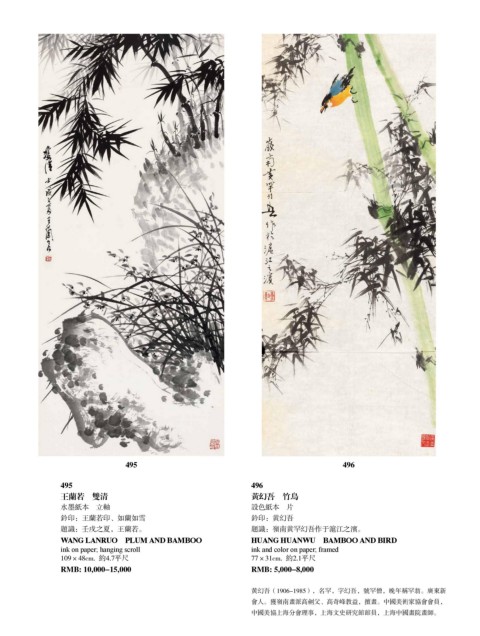 雙清
495
496
495
王蘭若　雙清
水墨紙本　立軸
鈐印：王蘭若印、如蘭如雪
題識：壬戌之夏，王蘭若。
WANG LANRUO　PLUM AND BAMBOO
ink on paper; hanging scroll
109×48cm.　約4.7平尺
RMB: 10,000~15,000
496
黃幻吾　竹鳥
設色紙本　片
鈐印：黃幻吾
題識：嶺南黃罕幻吾作于滬江之濱。
HUANG HUANWU　BAMBOO AND BIRD
ink and color on paper; framed
77×31cm.　約2.1平尺
RMB: 5,000~8,000
黃幻吾（1906~1985），名罕，字幻吾，號罕僧，晚年稱罕翁。廣東新
會人。獲嶺南畫派高劍父、高奇峰教益，擅畫。中國美術家協會會員，
中國美協上海分會理事，上海文史研究館館員，上海中國畫院畫師。